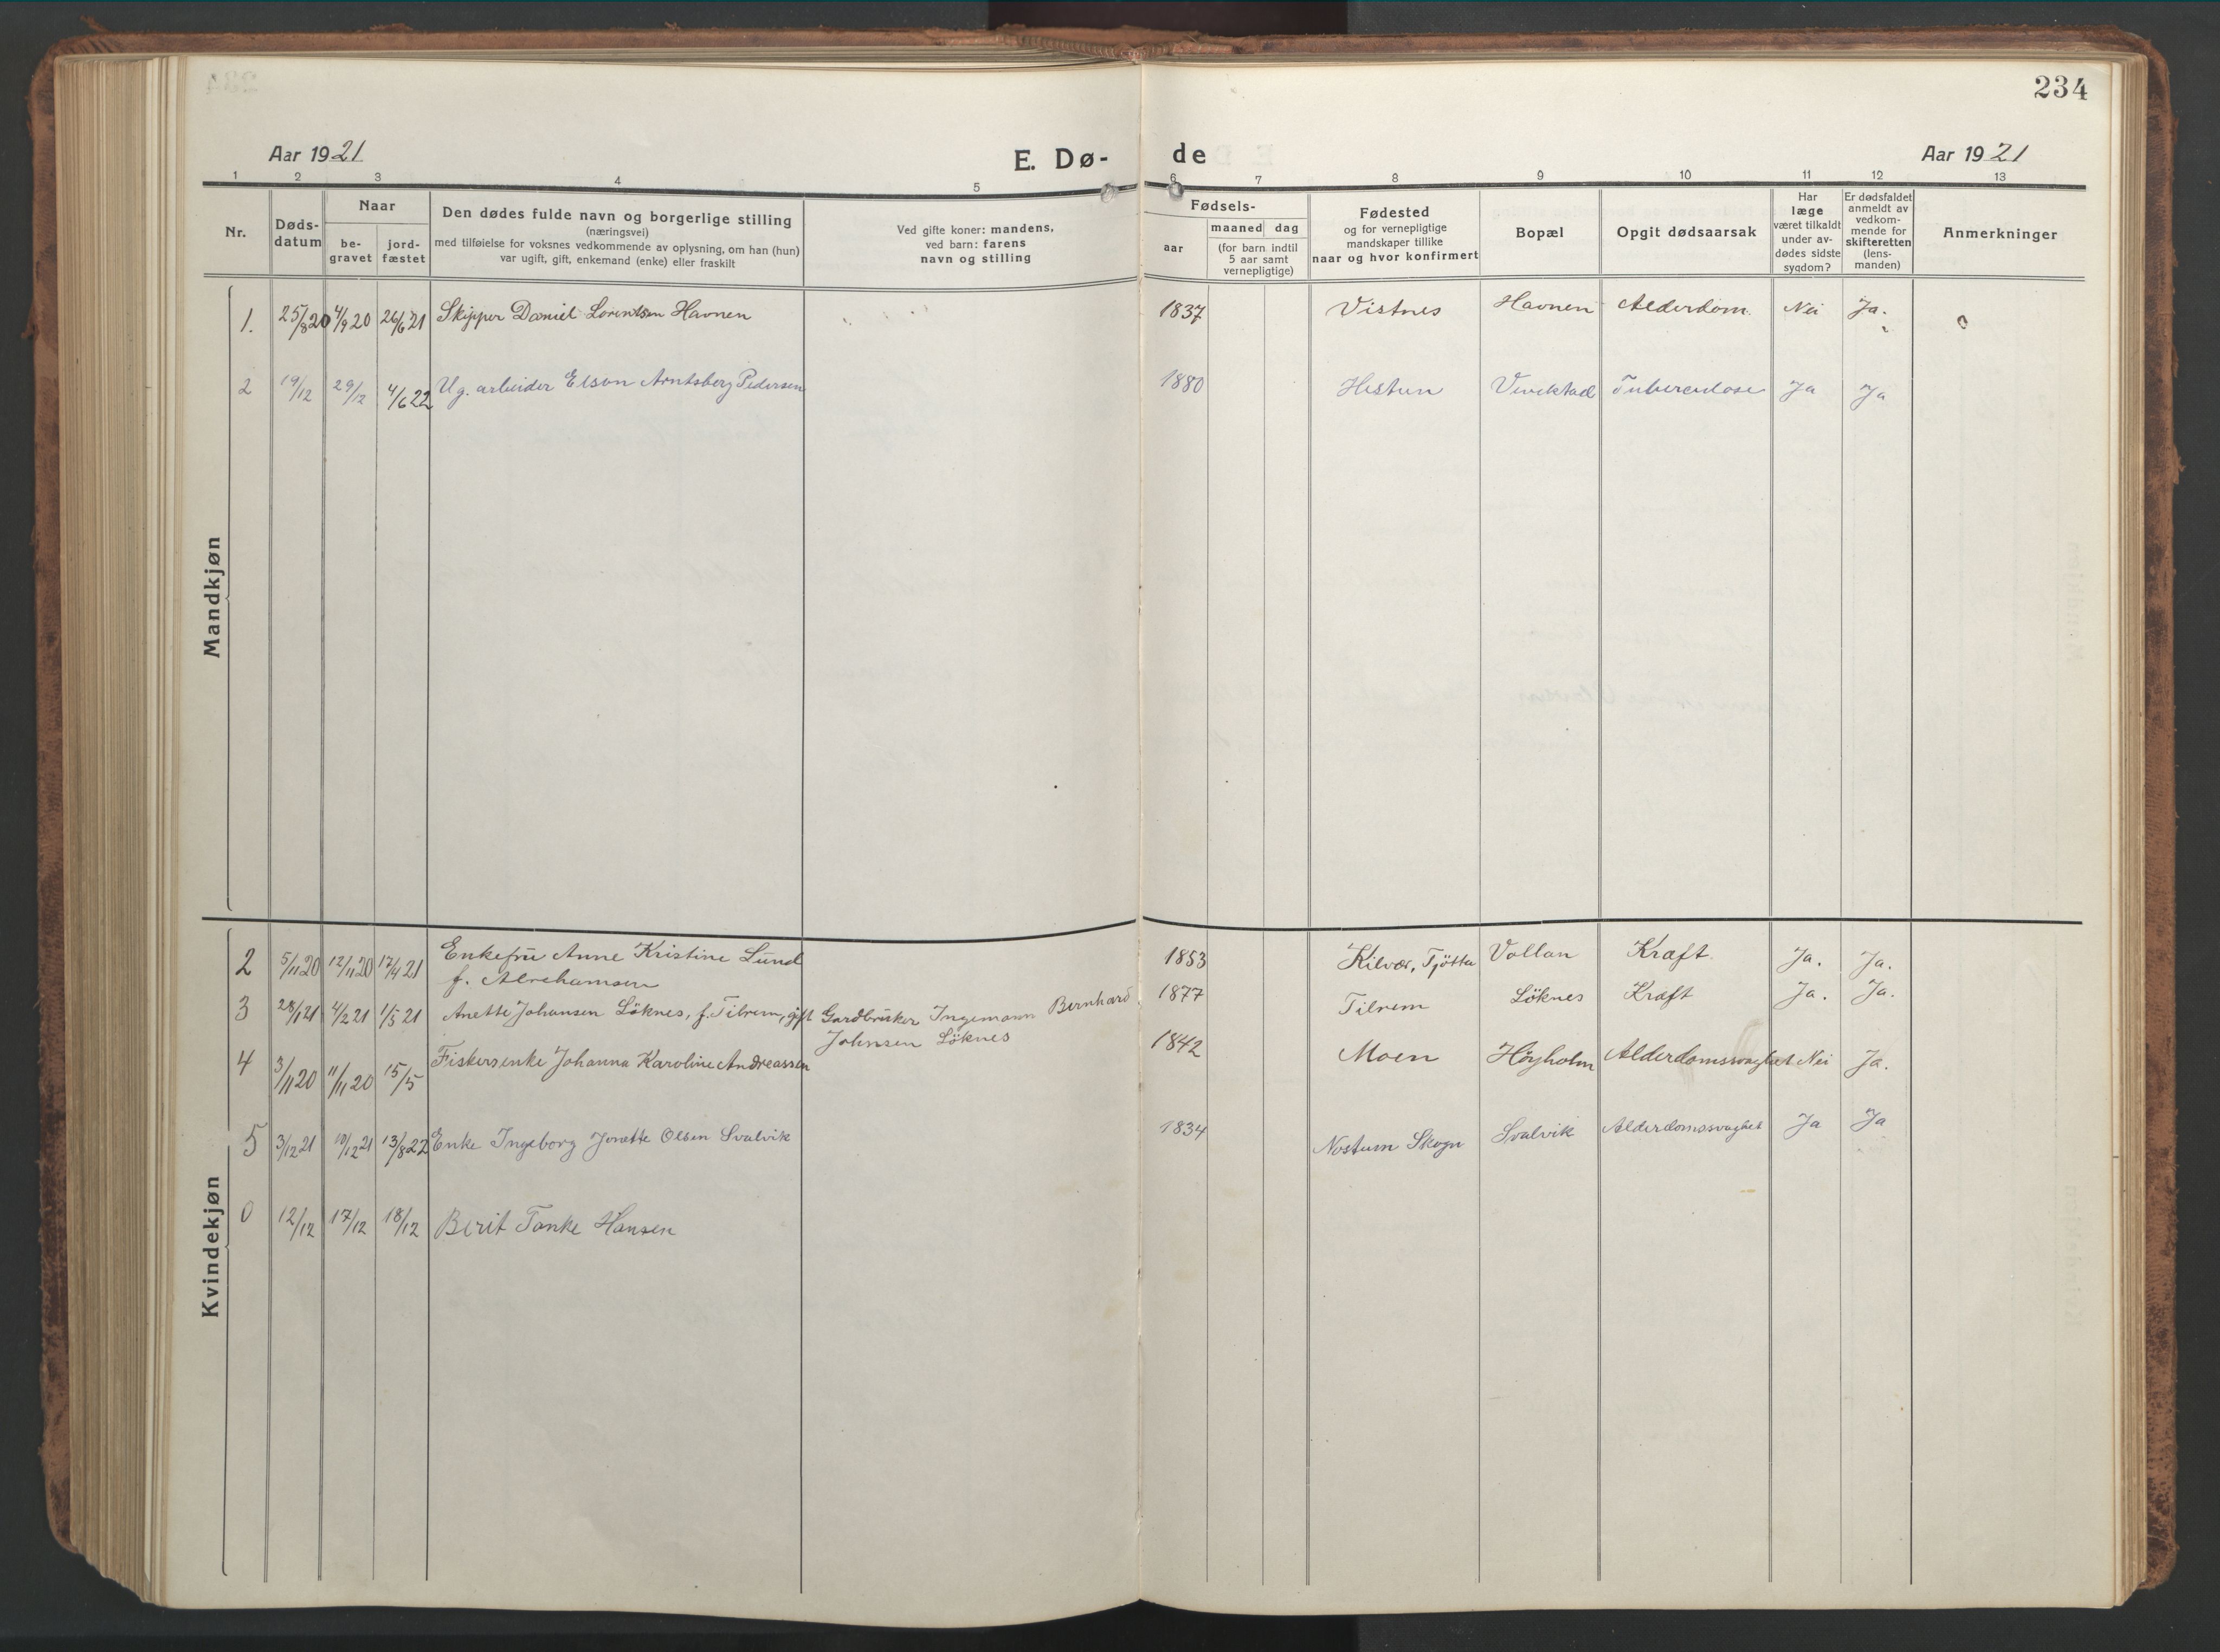 234
Aar 1921
E. Dø-
de
Aar 1921
1 2 3 4 5 6 7 8 9 10 11 12 13
Nr.
Døds-
datum
Naar
be-
gravet
jord-
fæstet
Den dødes fulde navn og borgerlige stilling
(næringsvei)
med tilføielse for voksnes vedkommende av oplysning, om han (hun)
var ugift, gift, enkemand (enke) eller fraskilt
Ved gifte koner: mandens,
ved barn: farens
navn og stilling
Fødsels-
aar
maaned dag
(for barn indtil
5 aar samt
vernepligtige)
Fødested
og for vernepligtige
mandskaper tillike
naar og hvor konfirmert
Bopæl
Opgit dødsaarsak
Har
læge
været tilkaldt
under av-
dødes sidste
sygdom?
Er dødsfaldet
anmeldt av
vedkom-
mende for
skifteretten
(lens-
manden)
Anmerkninger
Mandkjøn
1. 25/8 20 4/9 20 26/6 21 Skipper Daniel Lorentsen Havnen 1837 Vistnes Havnen Alderdom. Nei Ja.
2 19/12 29/12 4/6 22 Ug. arbeider Elson Arntsberg Pedersen 1880 Hestun Tuberculose Ja Ja
Kvindekjøn
2 5/11 20 12/11 20 17/4 21 Enkefru Anne Kristine Lund 1853 Kilvær, Tjötta Vollan Kræft. Ja. Ja.
f. Abrahamsen
3 28/1 21 4/2 21 1/5 21 Anette Johansen Löknes, f. Tilrem, gift Gardbruker Ingemann Bernhard 1877 Tilrem Löknes Kræft Ja. Ja.
Johnsen Löknes
4 3/11 20 11/11 20 15/5 Fiskersenke Johanna Karoline Andreassen 1842 Moen Höyholm Alderdomssvaghet Nei Ja.
5 3/12 21 10/12 21 13/8 22 Enke Ingeborg Jonette Olsen Svalvik 1834 Skogn Svalvik Alderdomssvaghet Ja Ja
0 12/12 17/12 18/12 Berit Tanke Hansen